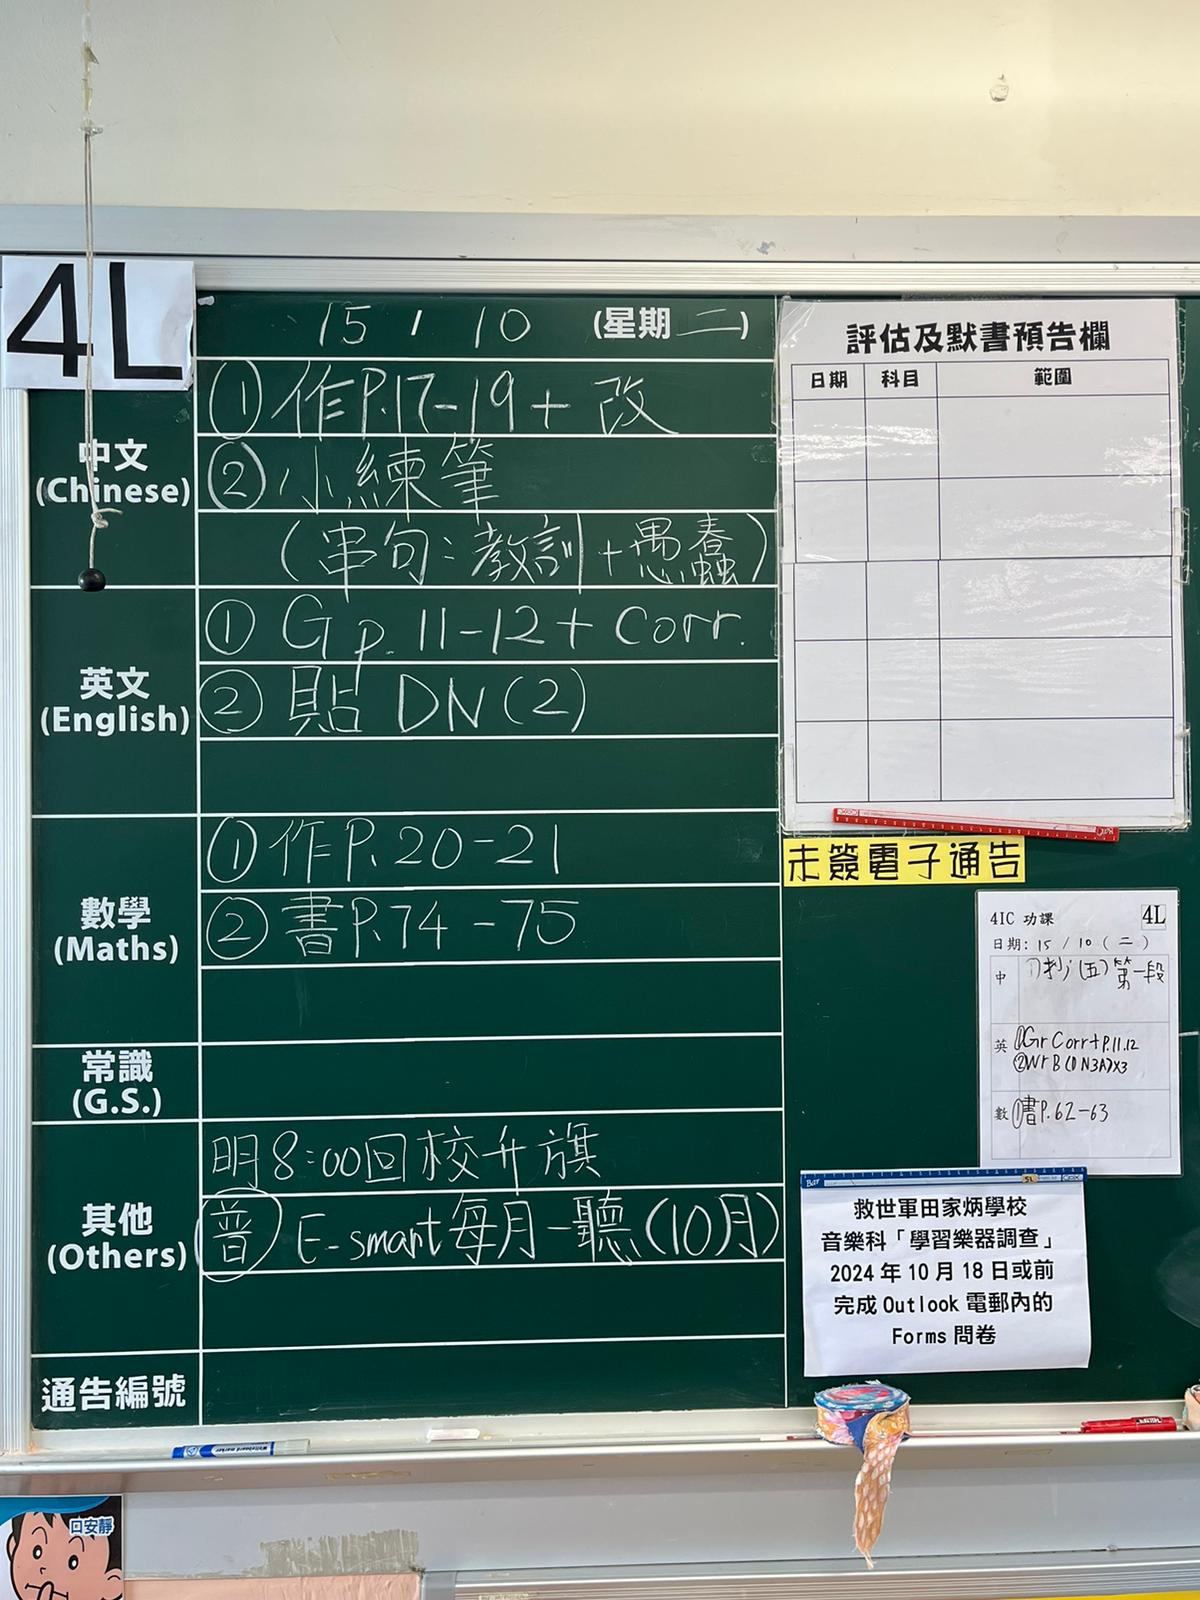 4L
15 / 10 (星期二)
中文
(Chinese)
① 作P.17-19 + 改
② 小練筆
(串句：教訓 + 愚蠢)
英文
(English)
① G p. 11-12 + Corr.
② 貼 DN (2)
數學
(Maths)
① 作P.20-21
② 書P.74-75
常識
(G.S.)
其他
(Others)
明8:00回校升旗
普 E-smart每月一聽(10月)
通告編號
評估及默書預告欄
日期 科目 範圍
未簽電子通告
4IC 功課 4L
日期: 15 / 10 ( 二 )
中
(五) 第一段
英 ①Gr Corr+P.11.12
②Wr B (DN3A)X3
數 ①書P.62-63
救世軍田家炳學校
音樂科「學習樂器調查」
2024 年 10 月 18 日或前
完成 Outlook 電郵內的
Forms 問卷
Whiteboard marker
口安靜